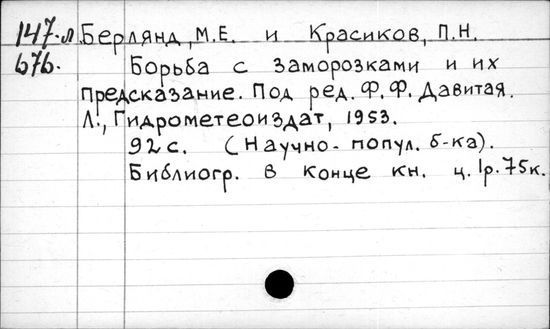 147-л Берлянд, М.Е. и Красиков, П.Н.
676. Борьба с заморозками и их
предсказание. Под ред. Ф.Ф. Давитая.
Л., Гидрометеоиздат, 1953.
92 с. (Научно-попул. б-ка).
Библиогр. в конце кн. ц. 1р. 75к.